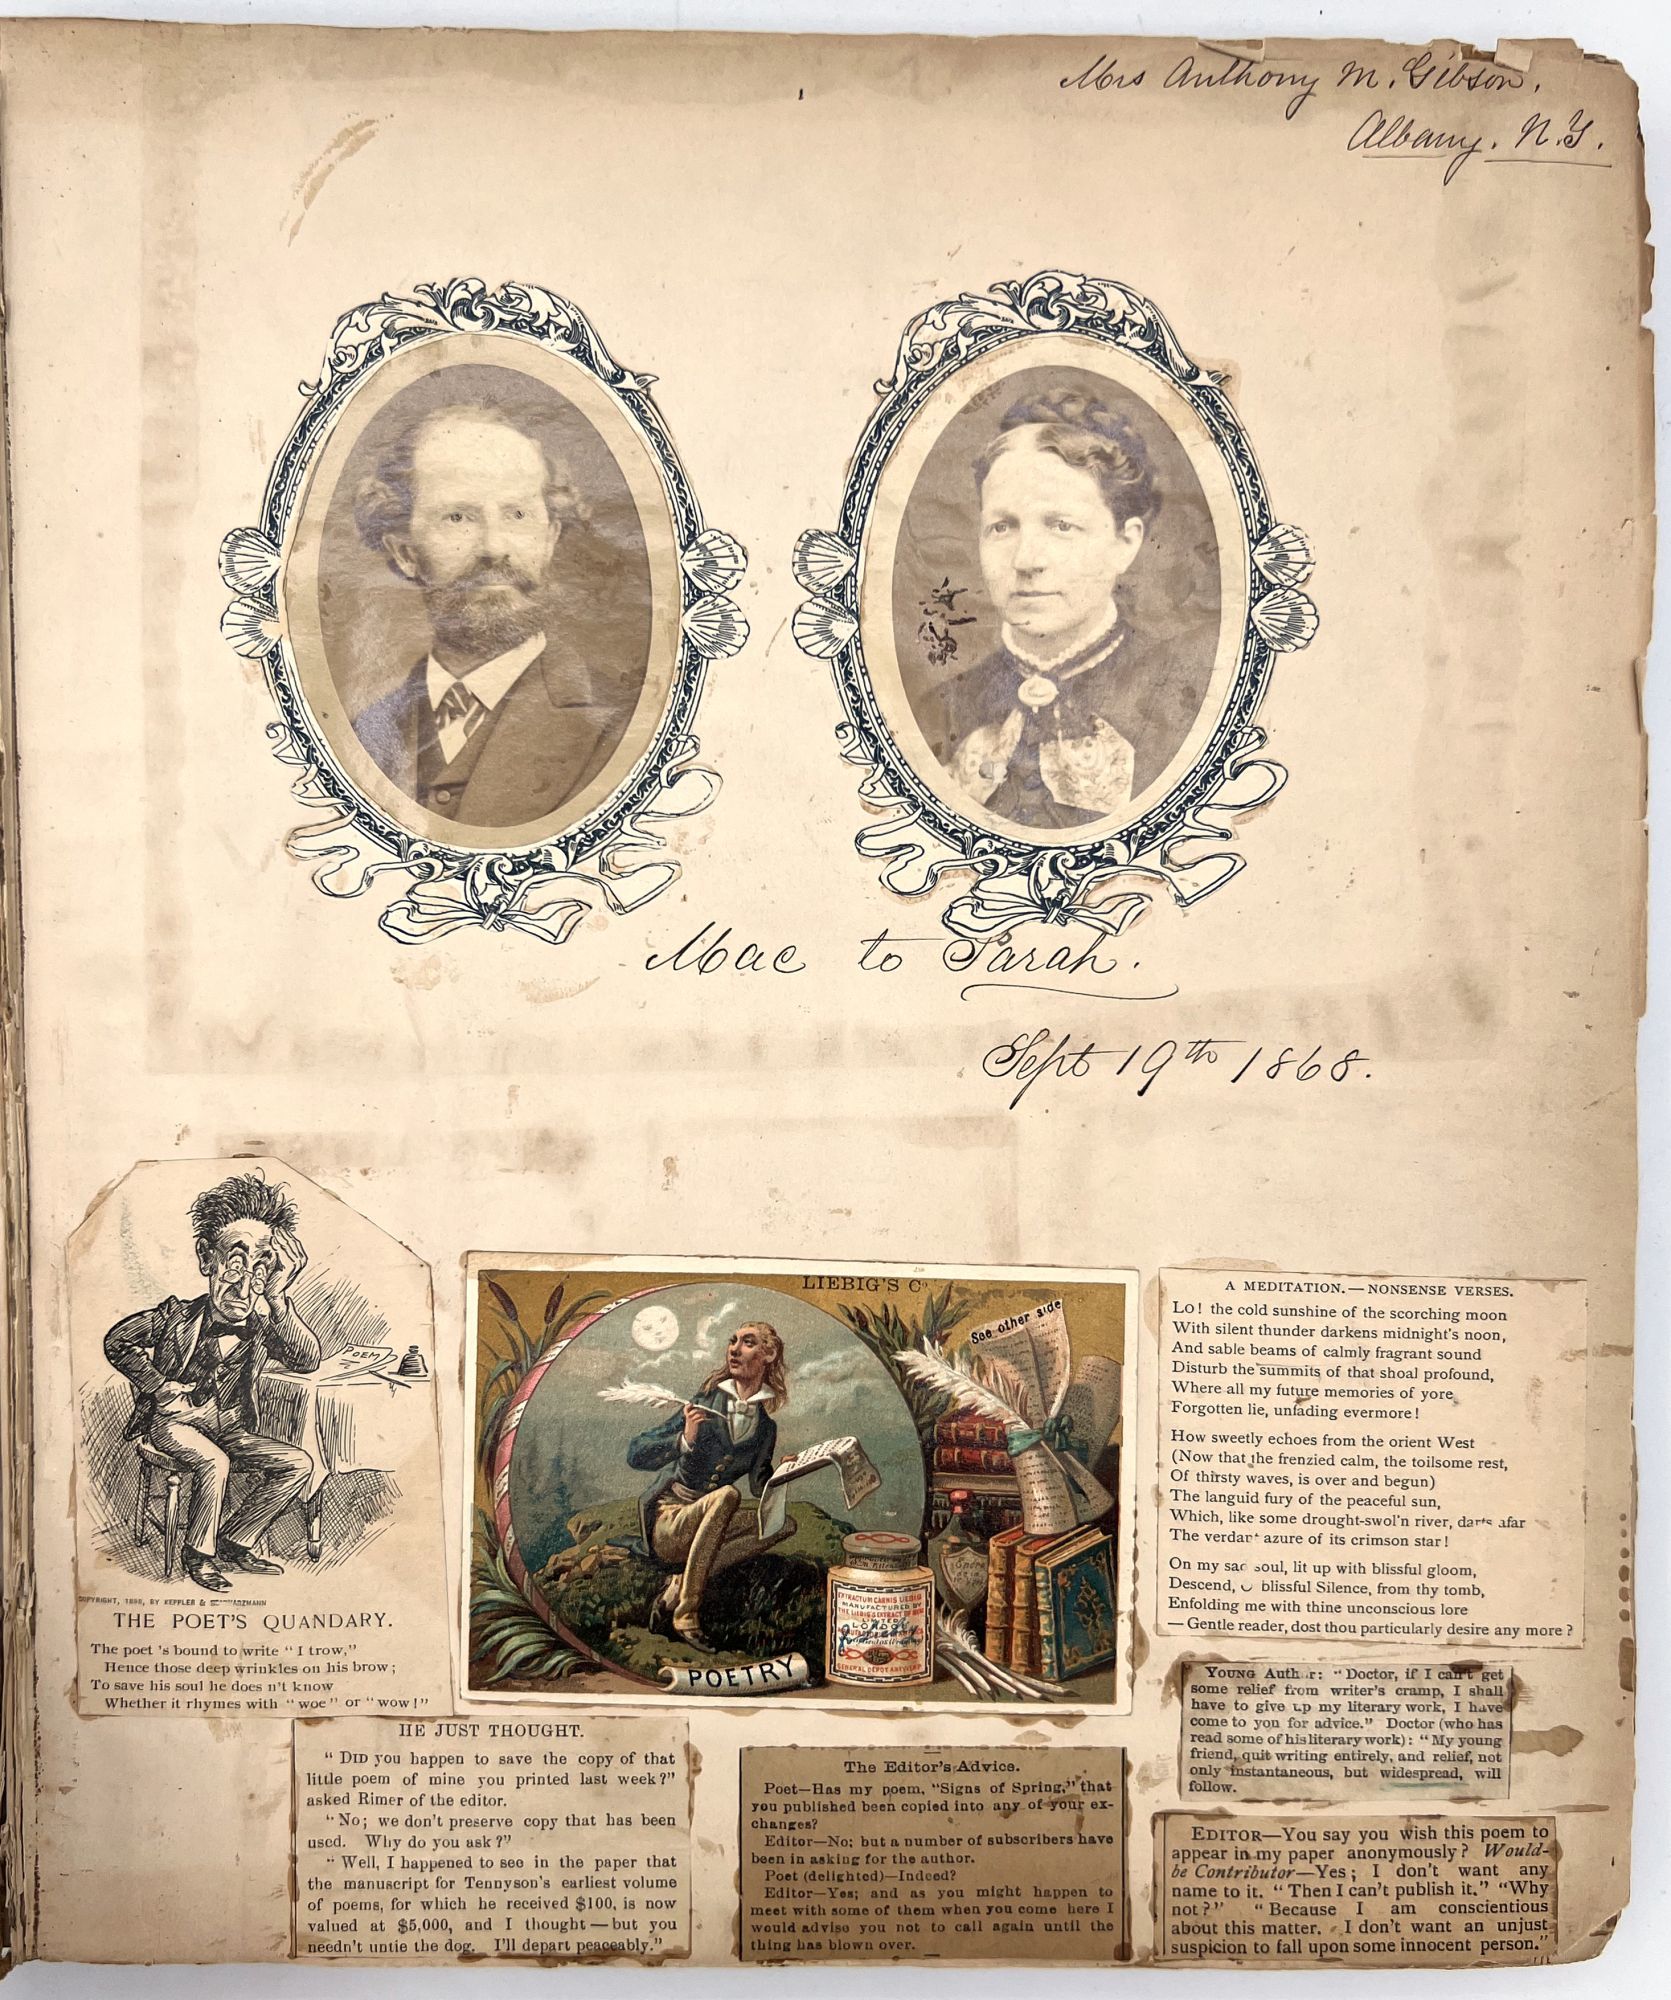 Mrs Anthony M. Gibson.
Albany. N.Y.
Mac to Sarah.
Sept 19th 1868.
POEM
COPYRIGHT, 1898, BY KEPPLER & SCHWARZMANN
THE POET'S QUANDARY.
The poet 's bound to write "I trow,"
Hence those deep wrinkles on his brow;
To save his soul he does n't know
Whether it rhymes with "woe" or "wow!"
LIEBIG'S Co
See other side
EXTRACTUM CARNIS LIEBIG
MANUFACTURED BY
THE LIEBIG'S EXTRACT OF MEAT
LIMITED
LONDON
GENERAL DEPOT ANTWERP
POETRY
A MEDITATION.—NONSENSE VERSES.
Lo! the cold sunshine of the scorching moon
With silent thunder darkens midnight's noon,
And sable beams of calmly fragrant sound
Disturb the summits of that shoal profound,
Where all my future memories of yore
Forgotten lie, unfading evermore!
How sweetly echoes from the orient West
(Now that the frenzied calm, the toilsome rest,
Of thirsty waves, is over and begun)
The languid fury of the peaceful sun,
Which, like some drought-swol'n river, darts afar
The verdant azure of its crimson star!
On my sad soul, lit up with blissful gloom,
Descend, O blissful Silence, from thy tomb,
Enfolding me with thine unconscious lore
—Gentle reader, dost thou particularly desire any more?
HE JUST THOUGHT.
"DID you happen to save the copy of that
little poem of mine you printed last week?"
asked Rimer of the editor.
"No; we don't preserve copy that has been
used. Why do you ask?"
"Well, I happened to see in the paper that
the manuscript for Tennyson's earliest volume
of poems, for which he received $100, is now
valued at $5,000, and I thought—but you
needn't untie the dog. I'll depart peaceably."
The Editor's Advice.
Poet—Has my poem, "Signs of Spring," that
you published been copied into any of your ex-
changes?
Editor—No; but a number of subscribers have
been in asking for the author.
Poet (delighted)—Indeed?
Editor—Yes; and as you might happen to
meet with some of them when you come here I
would advise you not to call again until the
thing has blown over.
YOUNG Author: "Doctor, if I can't get
some relief from writer's cramp, I shall
have to give up my literary work, I have
come to you for advice." Doctor (who has
read some of his literary work): "My young
friend, quit writing entirely, and relief, not
only instantaneous, but widespread, will
follow.
EDITOR—You say you wish this poem to
appear in my paper anonymously? Would-
be Contributor—Yes; I don't want any
name to it. "Then I can't publish it." "Why
not?" "Because I am conscientious
about this matter. I don't want an unjust
suspicion to fall upon some innocent person."